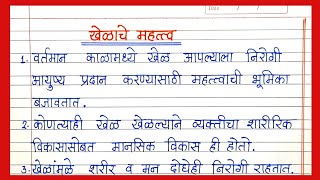 खेळाचे महत्त्व
1. वर्तमान काळामध्ये खेळ आपल्याला निरोगी
आयुष्य प्रदान करण्यासाठी महत्वाची भूमिका
बजावतात.
2. कोणत्याही खेळ खेळल्याने व्यक्तीचा शारीरिक
विकासासोबत मानसिक विकास ही होतो.
3. खेळांमुळे शरीर व मन दोघेही निरोगी राहतात.